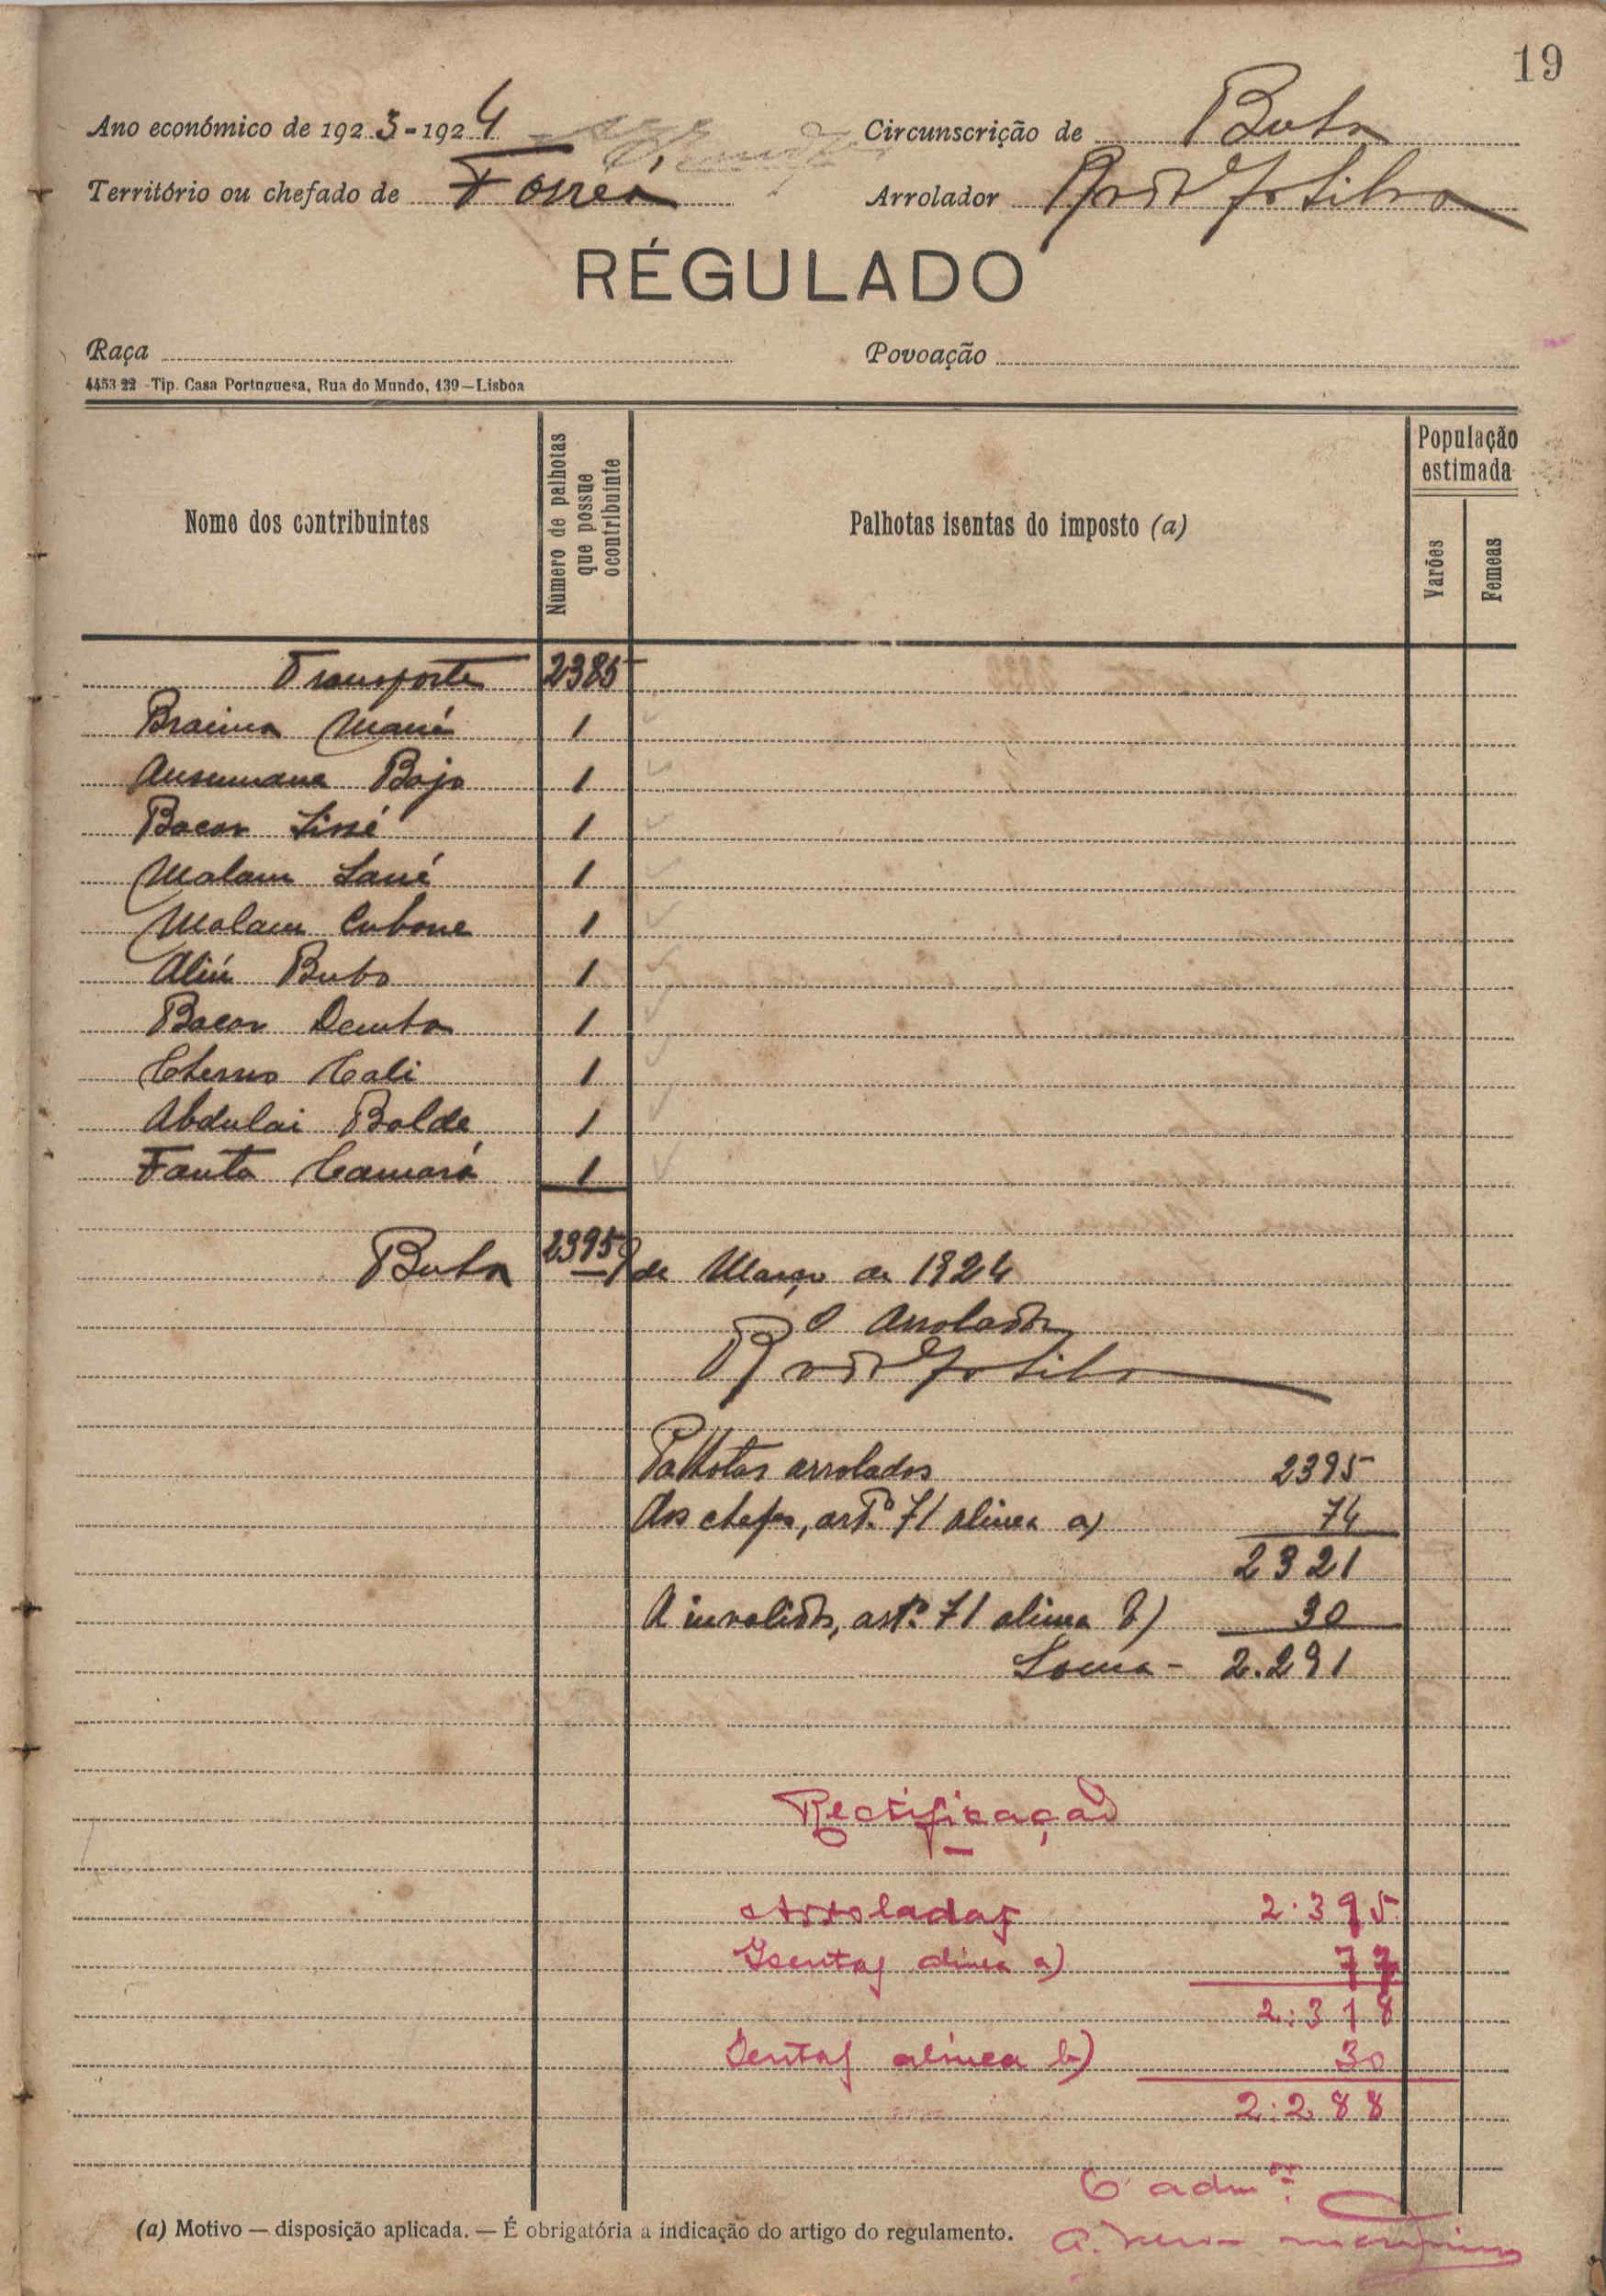 19
Ano económico de 1923-1924 Circunscrição de Buba
Território ou chefado de Forreá Arrolador
RÉGULADO
Raça Povoação
4453 22 - Tip. Casa Portuguesa, Rua do Mundo, 139—Lisboa
Nome dos contribuintes
Número de palhotas que possue o contribuinte
Palhotas isentas do imposto (a)
População estimada
Varões
Femeas
Transporte 2385
Braima Mané 1
Ansumane Bojo 1
Bacar Sissé 1
Malam Sané 1
Malam Cubone 1
Aliú Bubo 1
Bacar Demba 1
Cherno Cali 1
Abdulai Balde 1
Fanta Camará 1
2395
Buba 9 de Março de 1924
O Arrolador
Palhotas arroladas 2395
Aos chefes, artº. 71 alinea a) 74
2321
A invalidos, artº. 71 alinea b) 30
Soma - 2.291
Rectificação
Arroladas 2.395
Isentas alinea a) 77
2:318
Isentas alinea b) 30
2:288
O admor.
(a) Motivo — disposição aplicada. — É obrigatória a indicação do artigo do regulamento.